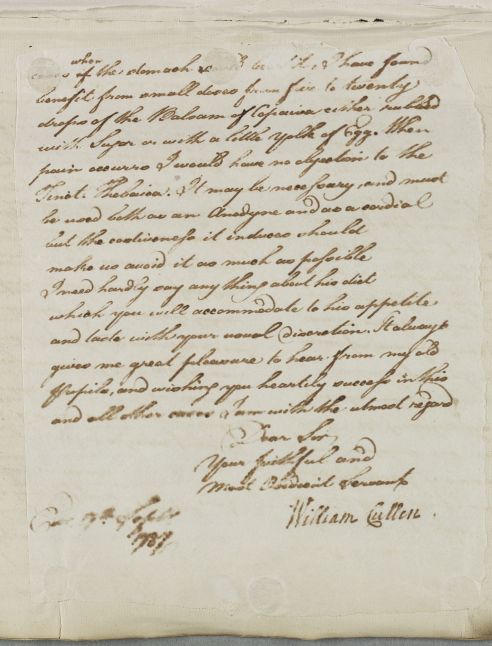 when
cases of the stomach could bear it, I have found
benefit from small doses from five to twenty
drops of the Balsam of Copaiva either rubbed
with Sugar or with a little yolk of Egg. When
pain occurrs I would have no objection to the
Tinct. Thebaica. It may be necessary, and must
be used both as an Anodyne and as a cordial
but the costiveness it induces should
make us avoid it as much as possible
I need hardly say any thing about his diet
which you will accommodate to his appetite
and taste with your usual discretion. It always
gives me great pleasure to hear from my old
Pupils, and wishing you heartily success in this
and all other cases I am with the utmost regard
Dear Sir
Your faithful and
Most Obedient Servant
William Cullen.
Septr